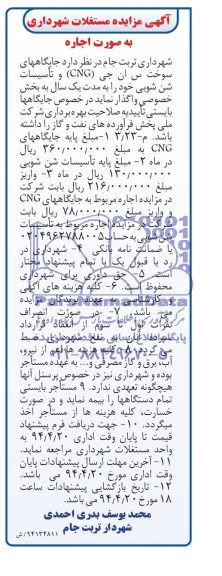 آگهی مزایده مستغلات شهرداری
به صورت اجاره
شهرداری تربت جام در نظر دارد جایگاههای
سوخت سی ان جی (CNG) و تأسیسات
شن شویی خود را به مدت یک سال به بخش
خصوصی واگذار نماید در خصوص جایگاهها
بایستی تأییدیه صلاحیت بهره برداری شرکت
ملی پخش فرآورده های نفت و گاز را داشته
باشد. ۱-۳/۲۳- مبلغ پایه جایگاههای
CNG به مبلغ ۳۶۰/۰۰۰/۰۰۰ ریال
در ماه ۲- مبلغ پایه تأسیسات شن شویی
۱۳۰/۰۰۰/۰۰۰ ریال در ماه ۳- واریز
مبلغ ۲۱۶/۰۰۰/۰۰۰ ریال بابت شرکت
در مزایده اجاره مربوط به جایگاههای CNG
و واریز مبلغ ۷۸/۰۰۰/۰۰۰ ریال بابت
شرکت در مزایده اجاره مربوط به تأسیسات
شن شویی به حساب
یا ضمانت نامه بانکی ۴- شهرداری در
رد یا قبول یک یا تمام پیشنهاد مختار
است. ۵- حق داوری برای شهرداری
محفوظ است. ۶- کلیه هزینه های آگهی
و کارشناسی به عهده برندگان مزایده
می باشد. ۷- در صورت انصراف
نفرات اول تا سوم از انعقاد قرارداد
سپرده آنان به نفع شهرداری ضبط
می گردد. ۸- کلیه هزینه
آب، برق و گاز مصرفی و... به عهده مستأجر
بوده و شهرداری نیز در خصوص پرسنل آنها
هیچگونه تعهدی ندارد. ۹- مستأجر بایستی
تمام دستگاهها را بیمه نماید و در صورت
خسارت، کلیه هزینه ها از مستأجر اخذ
میگردد. ۱۰- جهت دریافت فرم پیشنهاد
قیمت تا پایان وقت اداری ۹۴/۴/۲۰ به
واحد مستغلات شهرداری مراجعه نماید.
۱۱- آخرین مهلت ارسال پیشنهادات پایان
وقت اداری مورخ ۹۴/۴/۲۰ می باشد.
۱۲- تاریخ بازگشایی پیشنهادات ساعت
۱۸ مورخ ۹۴/۴/۲۰ می باشد.
محمد یوسف بدری احمدی
شهردار تربت جام
۹۴۱۳۴۸۱۱/ش